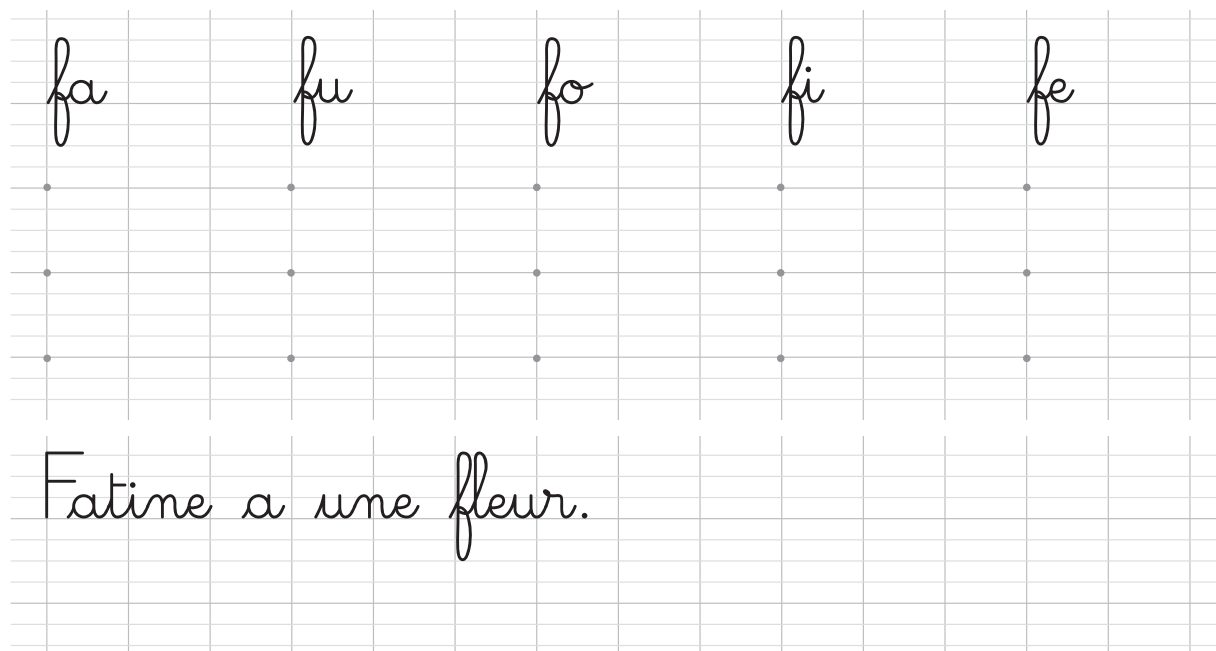 fa fu fo fi fe
Fatine a une fleur.